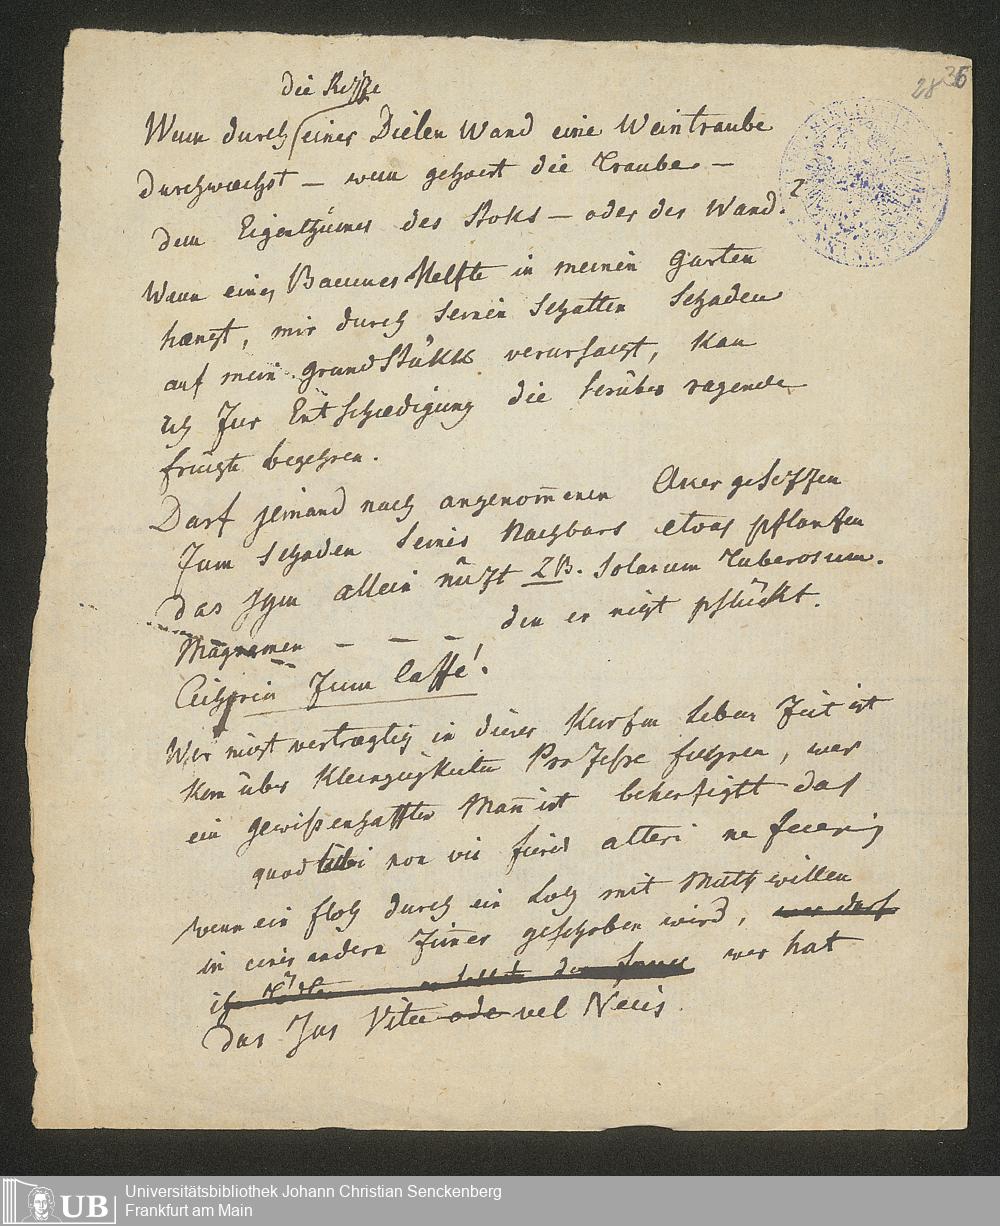 28 36
die Ritze
Wenn durch einer Dielen Wand eine Weintraube
durchwaechst – wem gehoert die Traube –
dem Eigenthümer des Stoks – oder der Wand. ?
Wenn eines Baumes Helfte in meinen Garten
haengt, mir durch seinen Schatten Schaden
auf mein Grundstükk verursacht, kan
ich zur Entschaedigung die herüber ragende
früchte begehren.
Darf jemand nach angenom̅enen
zum Schaden seines Nachbars etwas pflantzen
das ihm allein nüzt ZB. Solanum Tuberosum.
– – – den er nicht pflückt.
Cichorin zum Caffe!.
Wer nicht vertraeglich in dieser kurtzen Lebens Zeit ist
kan über Kleinigkeiten Prozesse fuehren, wer
ein gewissenhaffter Man̅ ist behertzigtt das
quod tibi non vis fieri alteri ne feceris
wenn ein floh durch ein Loch mit Muthwillen
in eines andern Zim̅er geschoben wird, wer darf
wer hat
das Jus Vitae ode vel Necis.
Universitätsbibliothek Johann Christian Senckenberg
Frankfurt am Main
UB